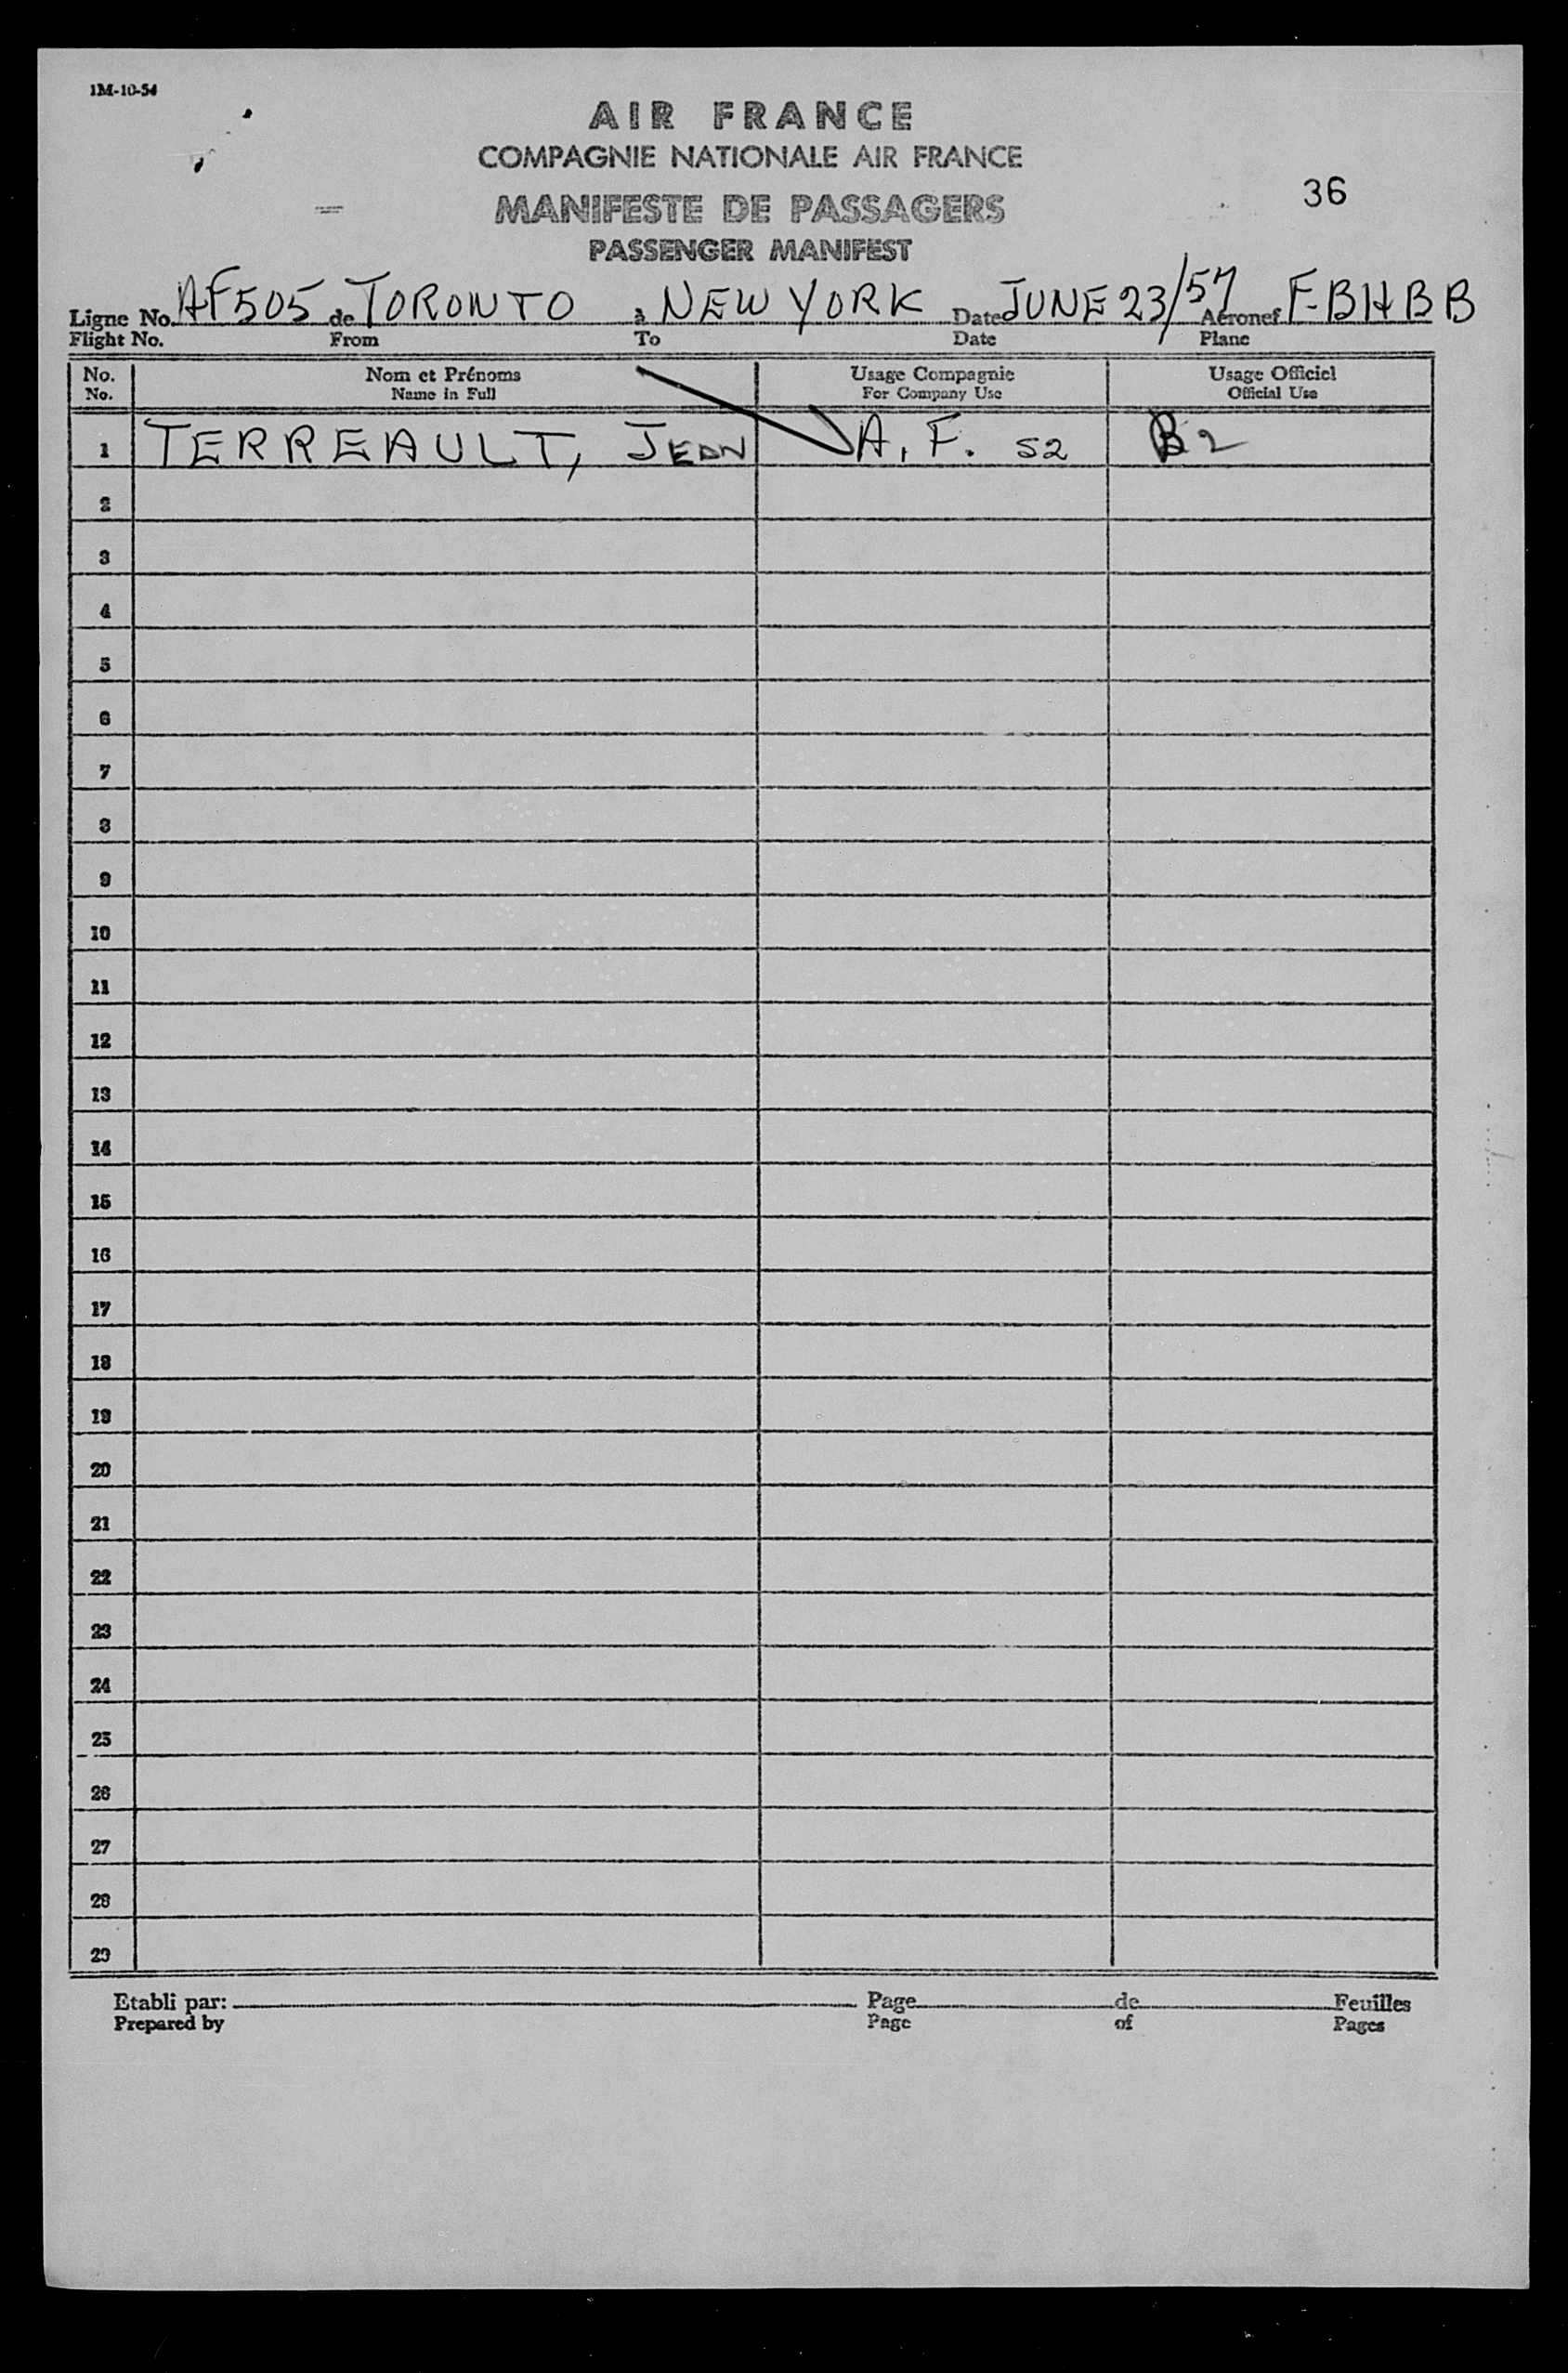 1M-10-54
AIR FRANCE
COMPAGNIE NATIONALE AIR FRANCE
36
MANIFESTE DE PASSAGERS
PASSENGER MANIFEST
Ligne No. AF505 de TORONTO à NEW YORK Date JUNE 23/57 Aéronef F-BHBB
Flight No. From To Date Plane
No. Nom et Prénoms Usage Compagnie Usage Officiel
No. Name in Full For Company Use Official Use
1 TERREAULT, JEAN A. F. 52 B2
2
3
4
5
6
7
8
9
10
11
12
13
14
15
16
17
18
19
20
21
22
23
24
25
26
27
28
29
Etabli par: Page de Feuilles
Prepared by Page of Pages